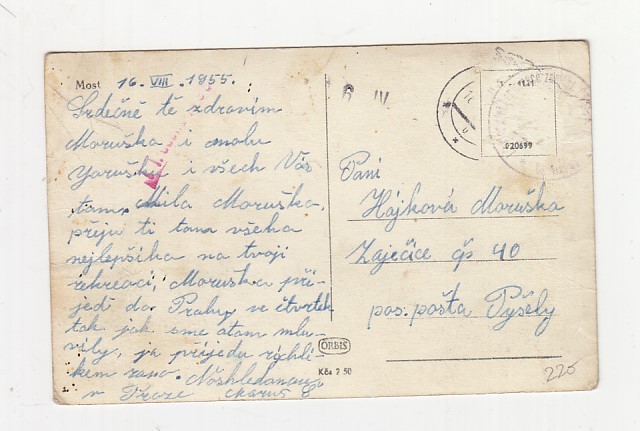 Most 16. VIII. 1955.
Srdečně tě zdravím
Moruška i malu
Jarušku i všech Vás
tam. Milá Moruško,
přeju ti tam všeho
nejlepšího na tvojí
rekreaci, Moruška při-
jeď do Prahy ve čtvrtek
tak jak sme o tom mlu-
vily, já přijedu rychlí-
kem ráno. Náshledanou
v Praze
6 IV.
020699
Paní
Hájková Moruška
Zaječice čp 40
pos. pošta Pyšely
ORBIS
Kčs ? 50
225